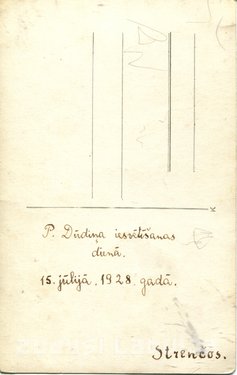 P. Dūdiņa iesvētīšanas
dienā.
15. jūlijā, 1928. gadā.
Strenčos.
K